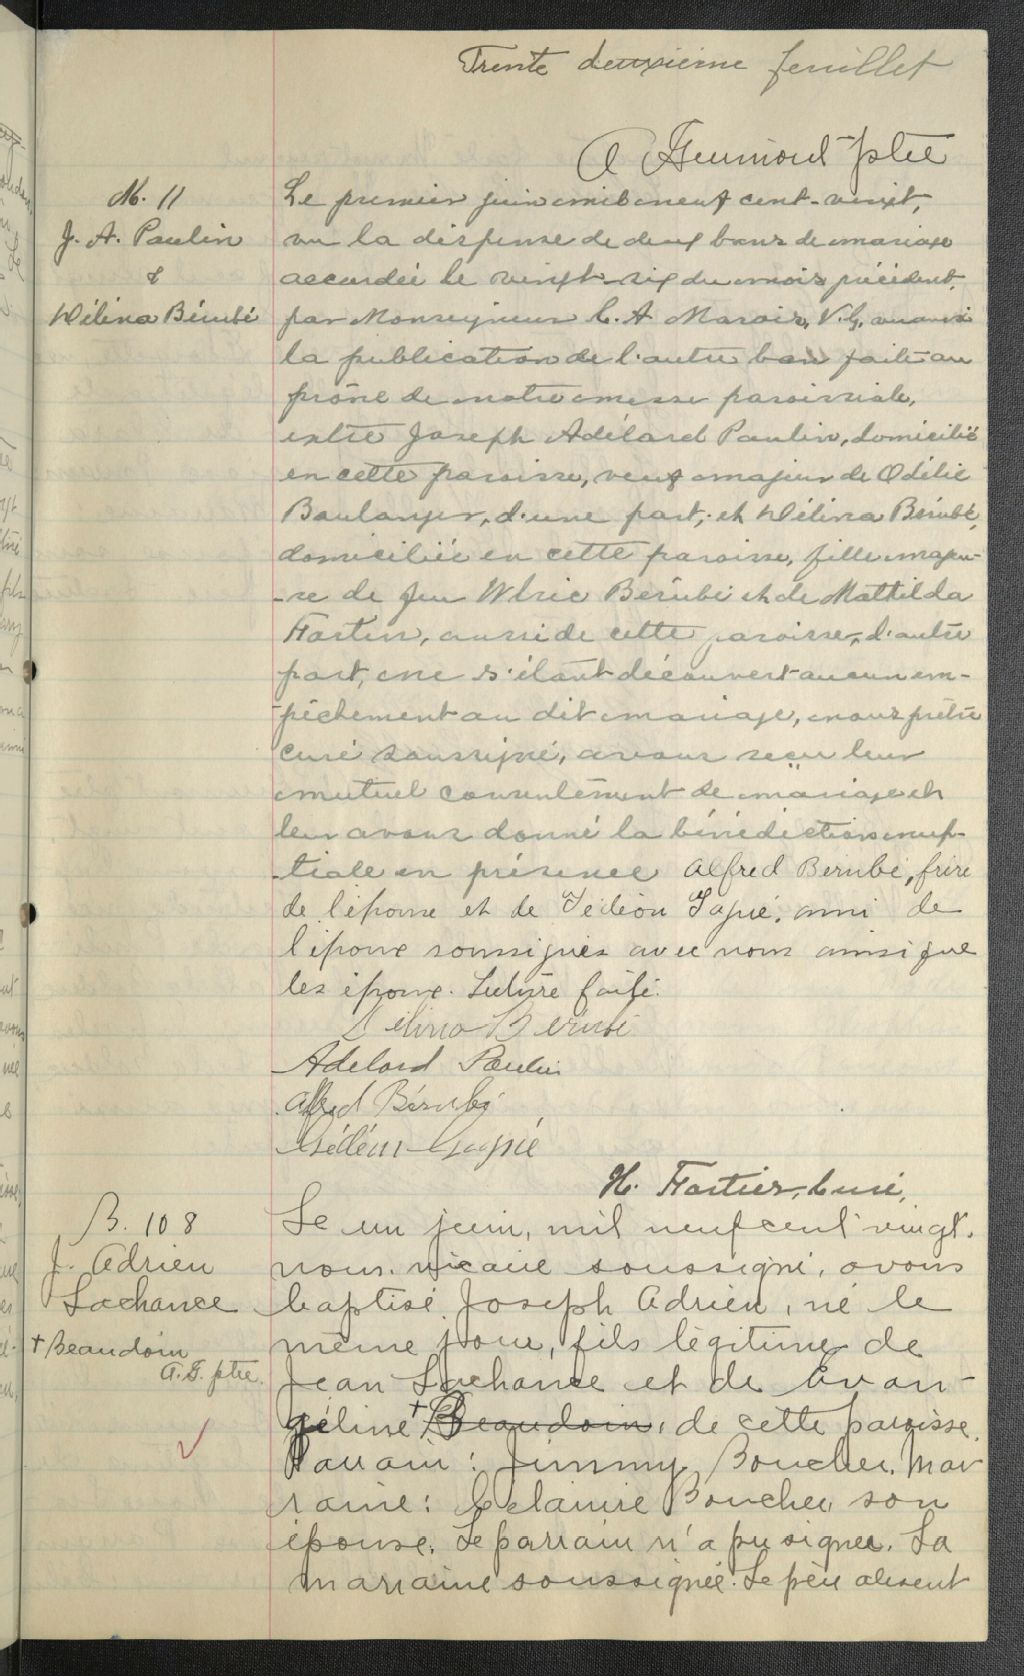 Trente deuxième feuillet
M. 11
J. A. Paulin
&
Délina Bérubé
Le premier juin mil neuf cent-vingt,
vu la dispense de deux bans de mariage
accordée le vingt-six du mois précédent,
par Monseigneur C. A. Marois, V.G., vu aussi
la publication de l'autre ban faite au
prône de notre messe paroissiale,
entre Joseph Adélard Paulin, domicilié
en cette paroisse, veuf majeur de Odélie
Boulanger, d'une part; et Délina Bérubé,
domiciliée en cette paroisse, fille majeu-
-re de feu Ulric Bérubé et de Mathilda
Fortin, aussi de cette paroisse, d'autre
part, ne s'étant découvert aucun em-
-pêchement au dit mariage, nous prêtre
curé soussigné, avons reçu leur
mutuel consentement de mariage et
leur avons donné la bénédiction nup-
-tiale en présence Alfred Berubé, frère
de l'épouse et de Gédéon Gagné, ami de
l'époux soussignés avec nous ainsi que
les époux. Lecture faite.
Délina Bérubé
Adelard Paulin
Alfred Bérubé
Gédéon Gagné
H. Fortier, Curé,
B. 108
J. Adrien
Lachance
+ Beaudoin
A.G. ptre.
Le un juin, mil neuf cent vingt,
nous, vicaire soussigné, avons
baptisé Joseph Adrien, né le
même jour, fils légitime de
Jean Lachance et de Evan-
géline + Beaudoin, de cette paroisse.
Parrain: Jimmy Boucher. Mar
raine: Célanire Boucher, son
épouse. Le parrain n'a pu signer. La
marraine soussignée. Le père absent